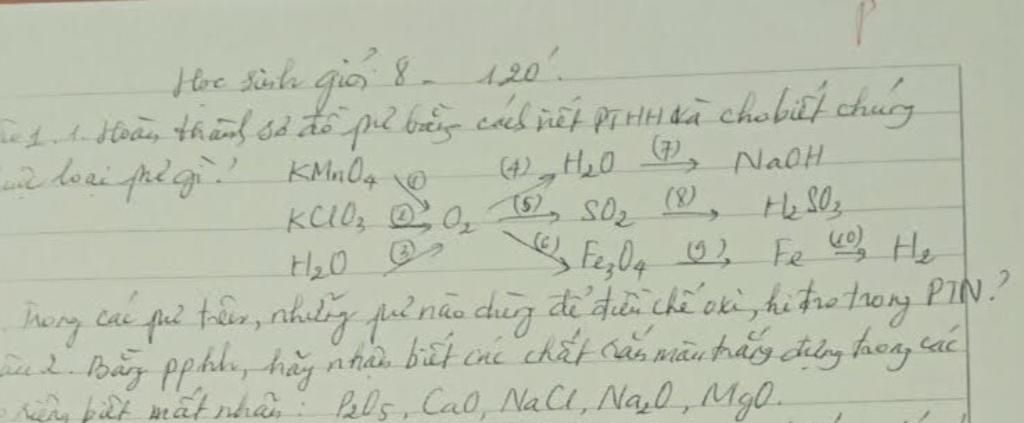 Học sinh giỏi 8 - 120'.
1. 1. Hoàn thành sơ đồ pứ bằng cách viết PTHH và cho biết chúng
loại pứ gì?
KMnO4 (1) (4) H2O (7) → NaOH
KClO3 (2) → O2 (5) → SO2 (8) → H2SO3
H2O (3) (6) Fe3O4 (9) → Fe (10) → H2
Trong các pứ trên, những pứ nào dùng để điều chế oxi, hiđro trong PTN?
2. Bằng pphh, hãy nhận biết các chất rắn màu trắng đựng trong các
riêng biệt mất nhãn: P2O5, CaO, NaCl, Na2O, MgO.